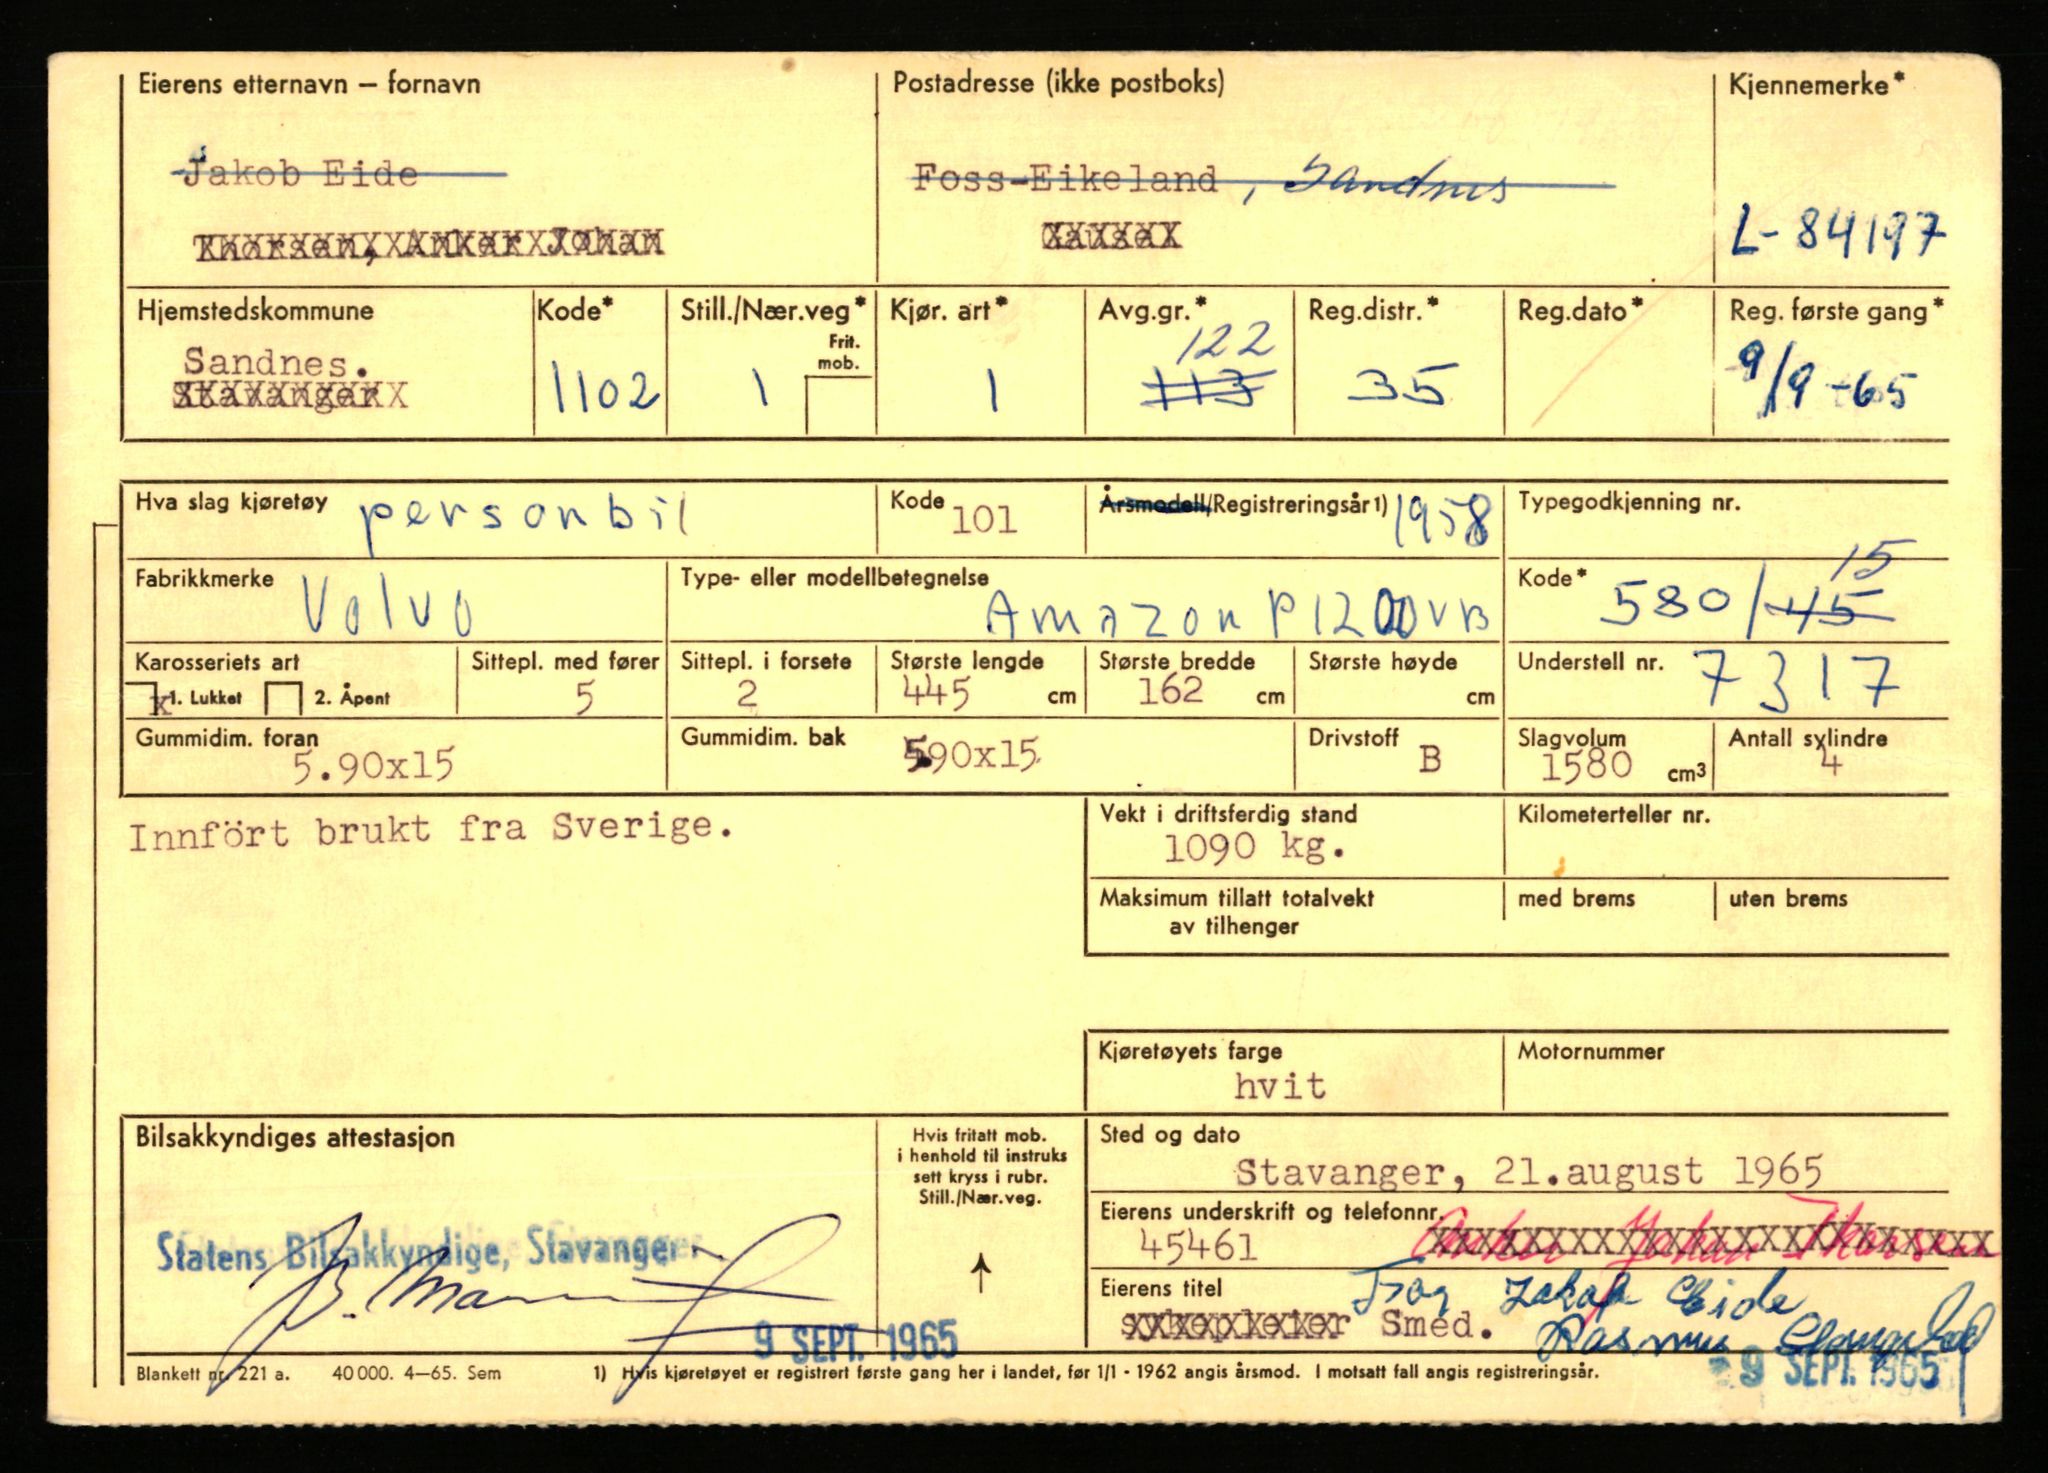 Eierens etternavn – fornavn
Postadresse (ikke postboks)
Kjennemerke*
Jakob Eide
Foss-Eikeland, Sandnes
Thorsen, Anker Johan
L- 84197
Hjemstedskommune
Kode*
Still./Nær.veg*
Frit. mob.
Kjør. art*
Avg.gr.*
Reg.distr.*
Reg.dato*
Reg. første gang*
Sandnes.
Stavanger
1102
1
1
122
113
35
9/9 -65
Hva slag kjøretøy personbil
Kode 101
Årsmodell/Registreringsår 1) 1958
Typegodkjenning nr.
Fabrikkmerke Volvo
Type- eller modellbetegnelse Amazon P1200VB
Kode* 580/45 15
Karosseriets art
x 1. Lukket 2. Åpent
Sittepl. med fører
5
Sittepl. i forsete
2
Største lengde
445 cm
Største bredde
162 cm
Største høyde
cm
Understell nr. 7317
Gummidim. foran
5.90x15
Gummidim. bak 5.90x15
Drivstoff B
Slagvolum
1580 cm3
Antall sylindre
4
Innfört brukt fra Sverige.
Vekt i driftsferdig stand
1090 kg.
Kilometerteller nr.
Maksimum tillatt totalvekt
av tilhenger
med brems
uten brems
Kjøretøyets farge
hvit
Motornummer
Bilsakkyndiges attestasjon
Hvis fritatt mob.
i henhold til instruks
sett kryss i rubr.
Still./Nær.veg.
Sted og dato
Stavanger, 21.august 1965
Statens Bilsakkyndige, Stavanger
9 SEPT. 1965
Eierens underskrift og telefonnr.
45461 Anker Johan Thorsen
Eierens titel
sykepleier Smed.
Jakob Eide
Rasmus
9 SEPT. 1965
Blankett nr. 221 a. 40 000. 4–65. Sem
1) Hvis kjøretøyet er registrert første gang her i landet, før 1/1 - 1962 angis årsmod. I motsatt fall angis registreringsår.